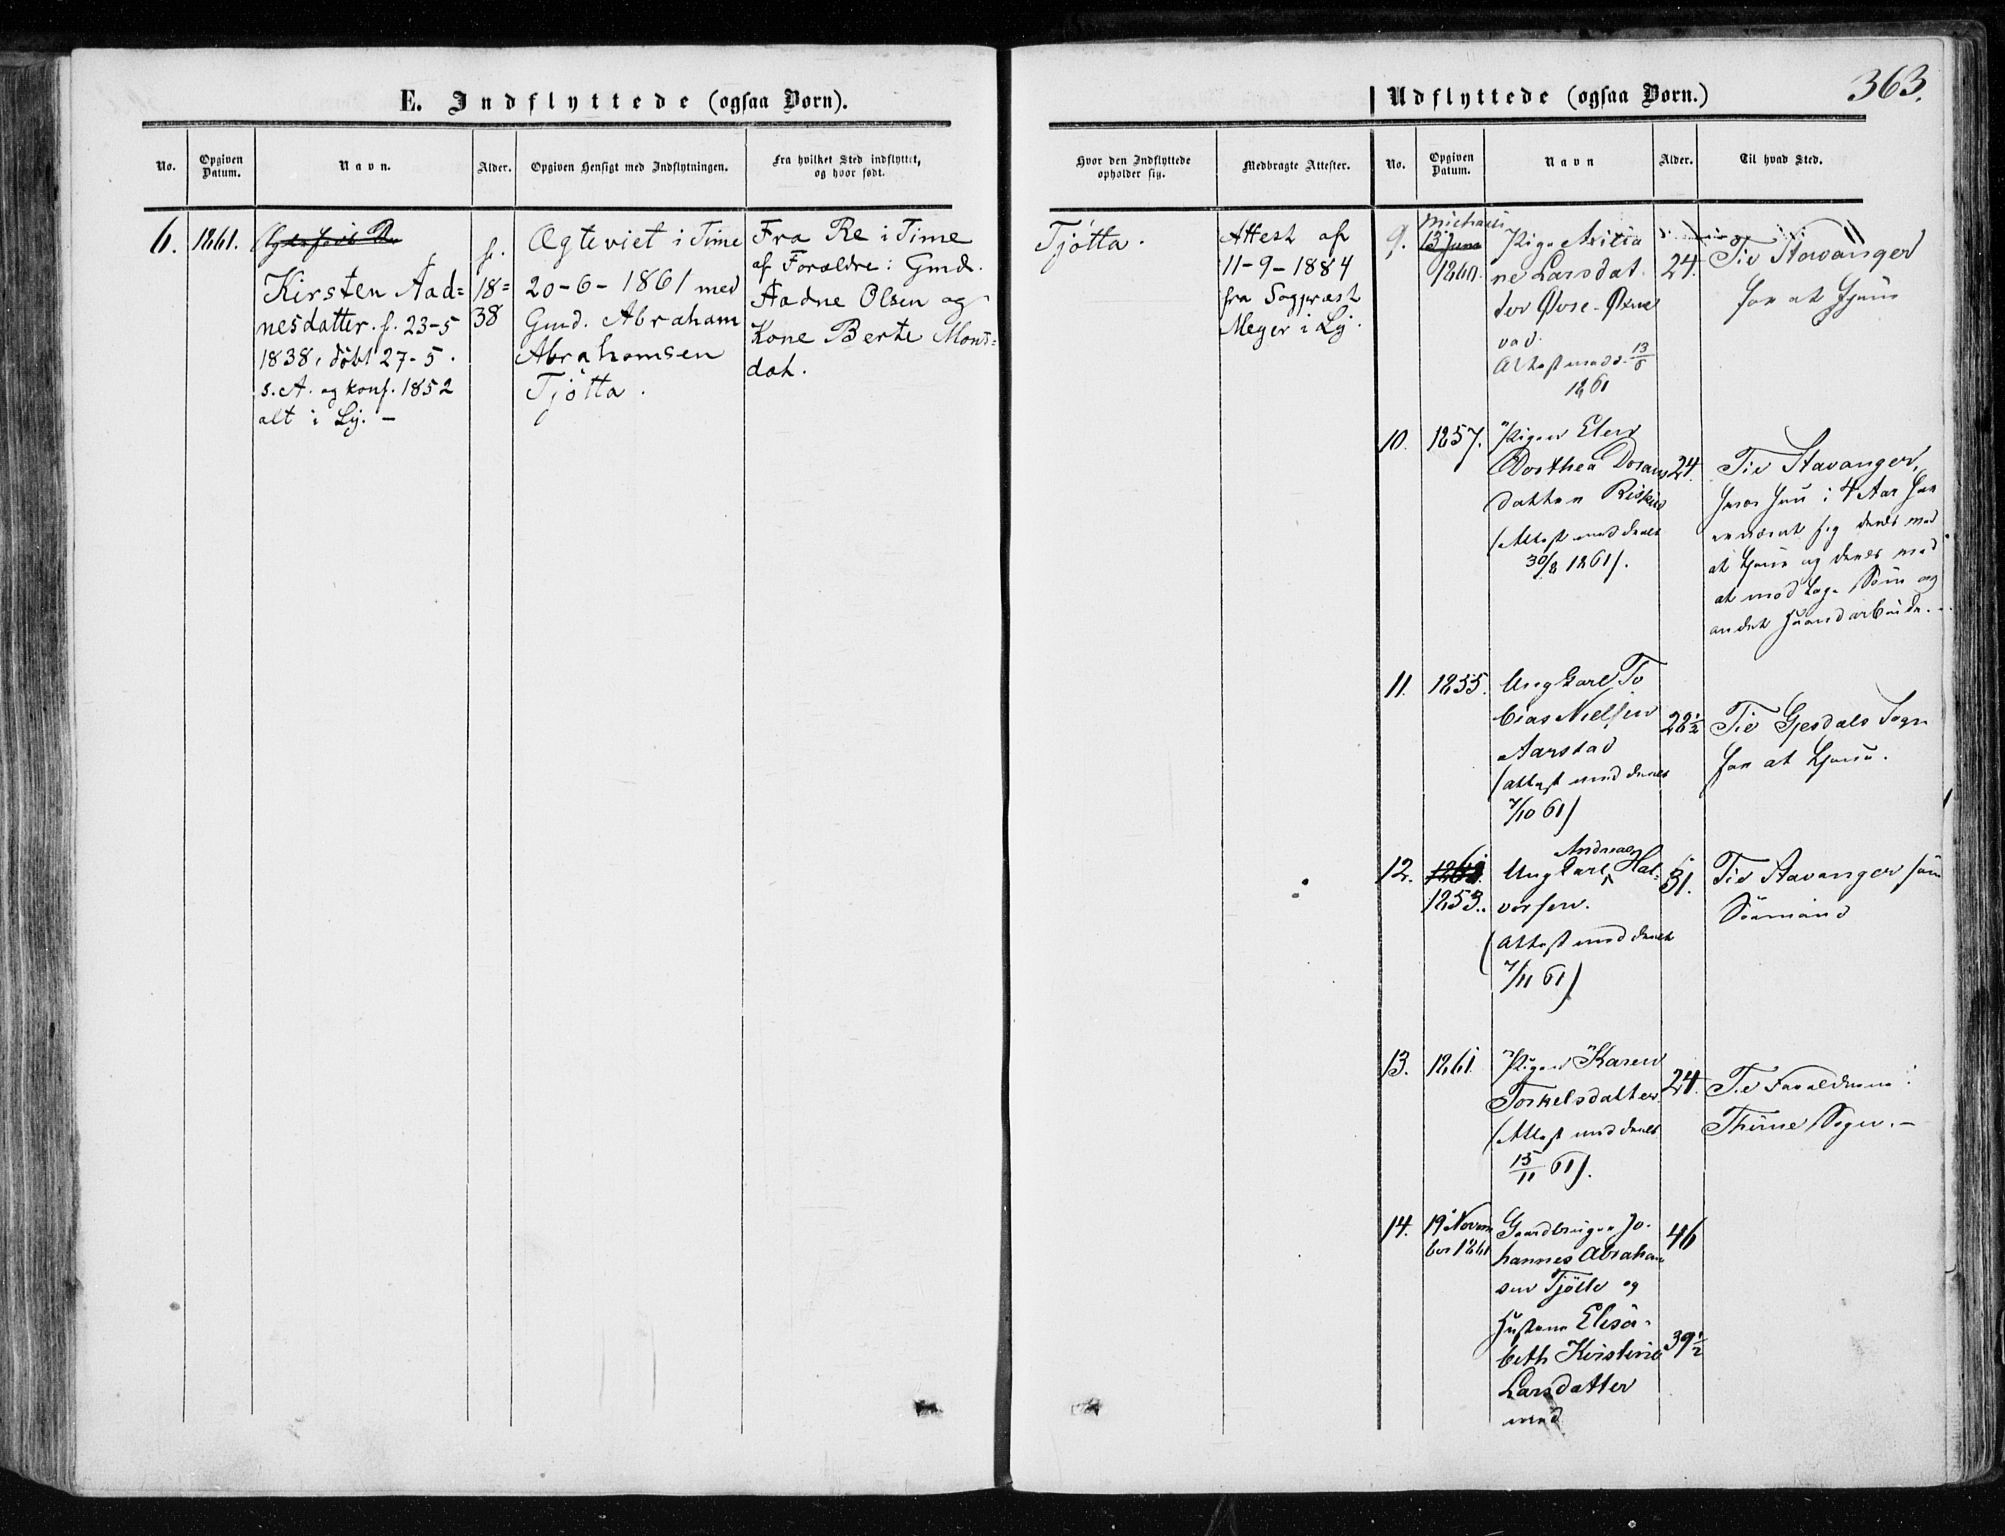 E. Indflyttede (ogsaa Børn).
No.
Opgiven
Datum.
Navn.
Alder.
Opgiven Hensigt med Indflytningen.
Fra hvilket Sted indflyttet,
og hvor født.
6.
1861.
Kirsten Aad=
nesdatter. f. 23-5
1838, døbt 27-5.
s. A. og konf. 1852
alt i Ly. —
f.
18=
38
Ægteviet i Time
20-6-1861 med
Gmd. Abraham
Abrahamsen
Tjötta.
Fra Re i Time
af Forældre: Gmd.
Aadne Olsen og
Kone Berte Mons=
dat.
363.
Udflyttede (ogsaa Børn.)
Hvor den Indflyttede
opholder sig.
Medbragte Attester.
No.
Opgiven
Datum.
Navn
Alder.
Til hvad Sted.
Tjötta.
Attest af
11-9-1884
fra Sogpræst
Meyer i Ly.
9.
Michaeli
13 Juni
1860.
Pige
ne Larsdat
ter Øvre-
vad.
Attest medd. 13/6
1861
24.
Til Stavanger
for at tjene
10.
1857.
Pigen Elen
Dorthea
datter
(Attest meddeelt
30/8 1861).
24
Til Stavanger,
hvor hun i 4 Aar har
ernæret sig deels med
at tjene og deels med
at modtage Søm og
andet Haandarbeide.
11.
1855.
Ungkarl To
bias Nielsen
Aarstad
(Attest meddeelt
7/10 61)
28 1/2
Til Gjesdals Sogn
for at tjene.
12.
1853.
Andreas
Ungkarl Hal-
vorsen.
(Attest meddeelt
7/11 61)
31.
Til Stavanger som
Sømand
13.
1861
Pigen Karen
Torkelsdatter
(Attest meddeelt
15/11 61).
24.
Til Forældrene i
Thime Sogn. —
14.
19 Novem
ber 1861
Gaardbruger Jo-
hannes Abraham
sen Tjötte og
Hustru Elisa-
beth Kirstine
Larsdatter
med
46
39 1/2